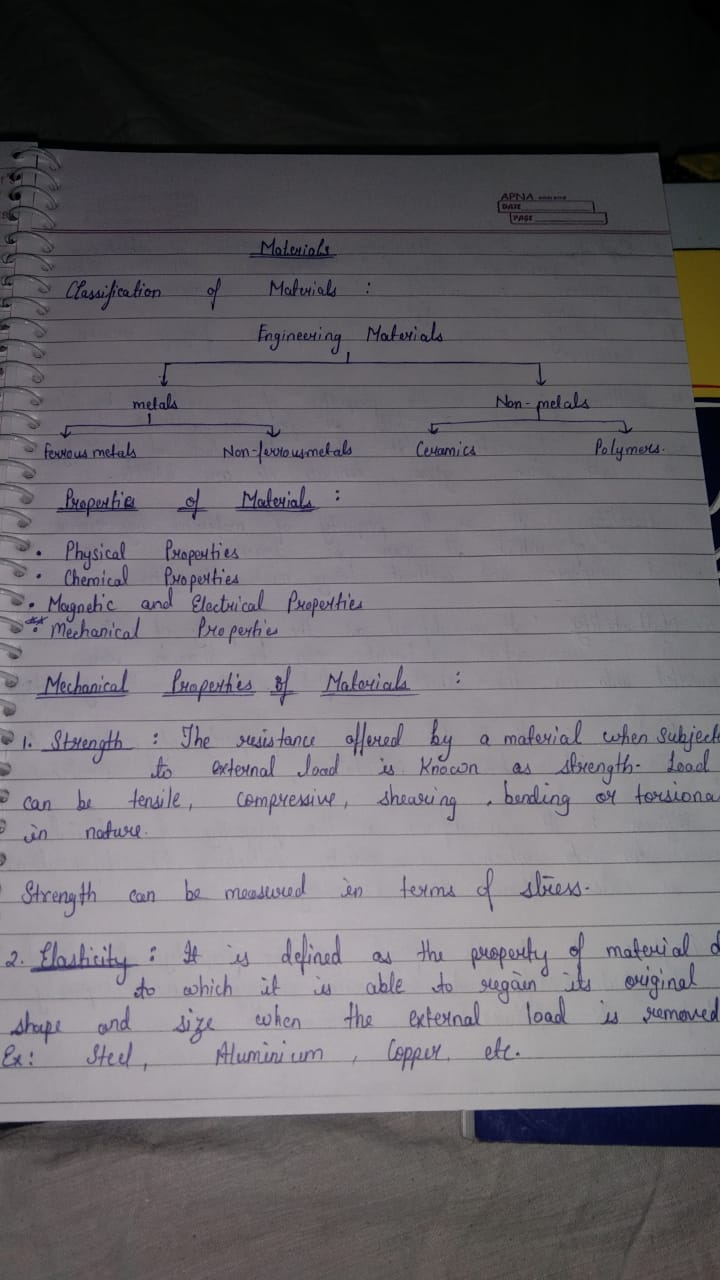 APNA
DATE
PAGE
Materials
Classification of Materials :
Engineering Materials
metals Non-metals
Ferrous metals Non-ferrous metals Ceramics Polymers.
Properties of Materials :
• Physical Properties
• Chemical Properties
• Magnetic and Electrical Properties
** • Mechanical Properties
Mechanical Properties of Materials :
1. Strength : The resistance offered by a material when Subject
to external load is known as strength. Load
can be tensile, compressive, shearing, bending or torsiona
in nature.
Strength can be measured in terms of stress.
2. Elasticity : It is defined as the property of material d
to which it is able to regain its original
shape and size when the external load is removed
Ex: Steel, Aluminium, Copper, etc.